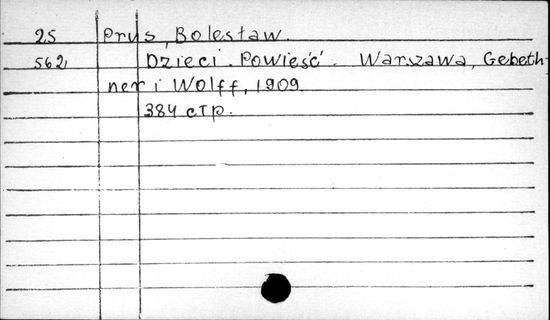 25 Prus, Bolesław.
562 Dzieci. Powieść. Warszawa, Gebeth-
ner i Wolff, 1909.
384 стр.